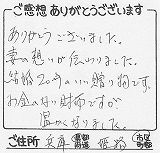 ご感想ありがとうございます
ありがとうございました。
妻の想いが伝わりました。
結婚20年のいい贈り物です。
お金のない財布ですが
温かくなりました。
ご住所 兵庫 都道府県 姫路 市区町村